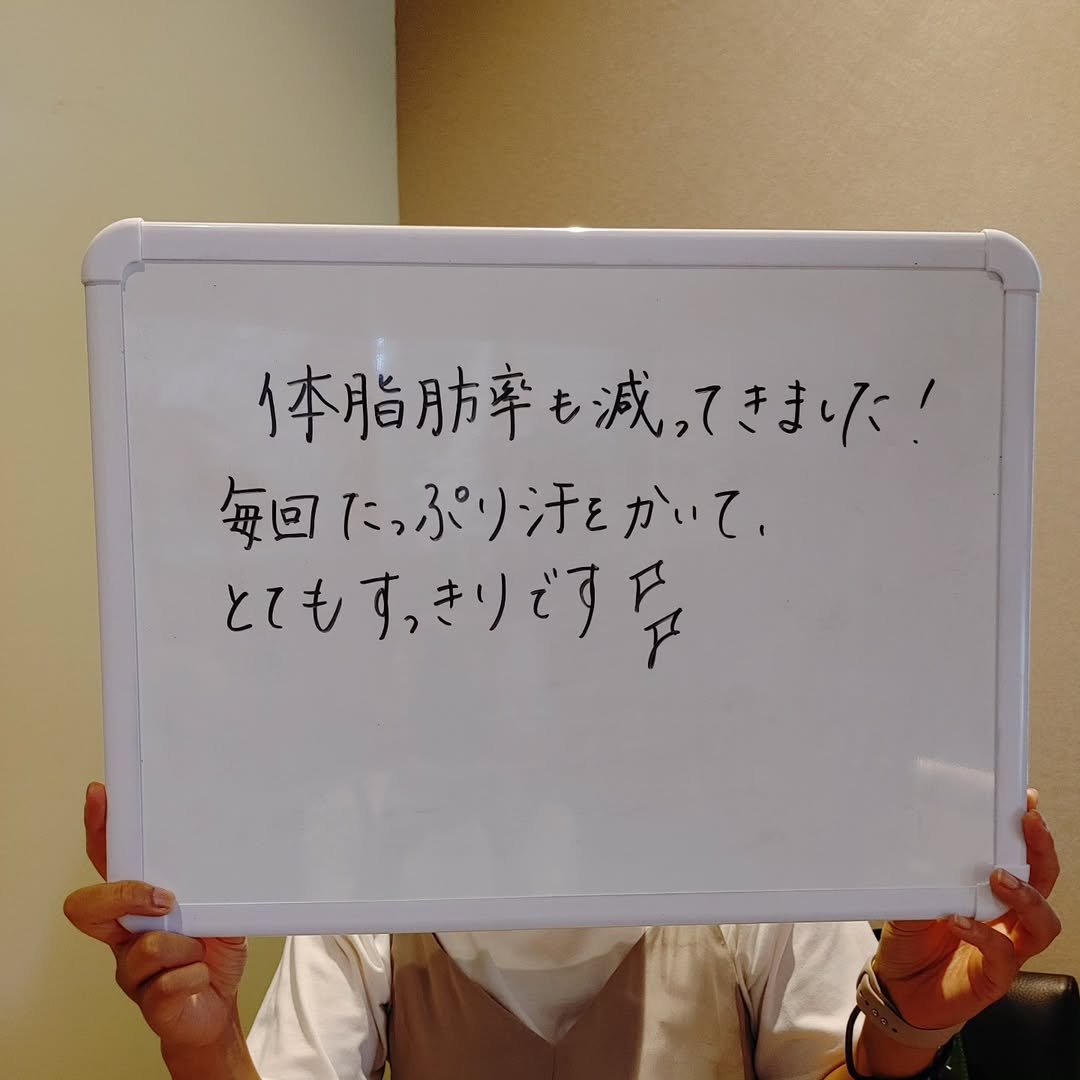 体脂肪率も減ってきました!
毎回たっぷり汗をかいて、
とてもすっきりです